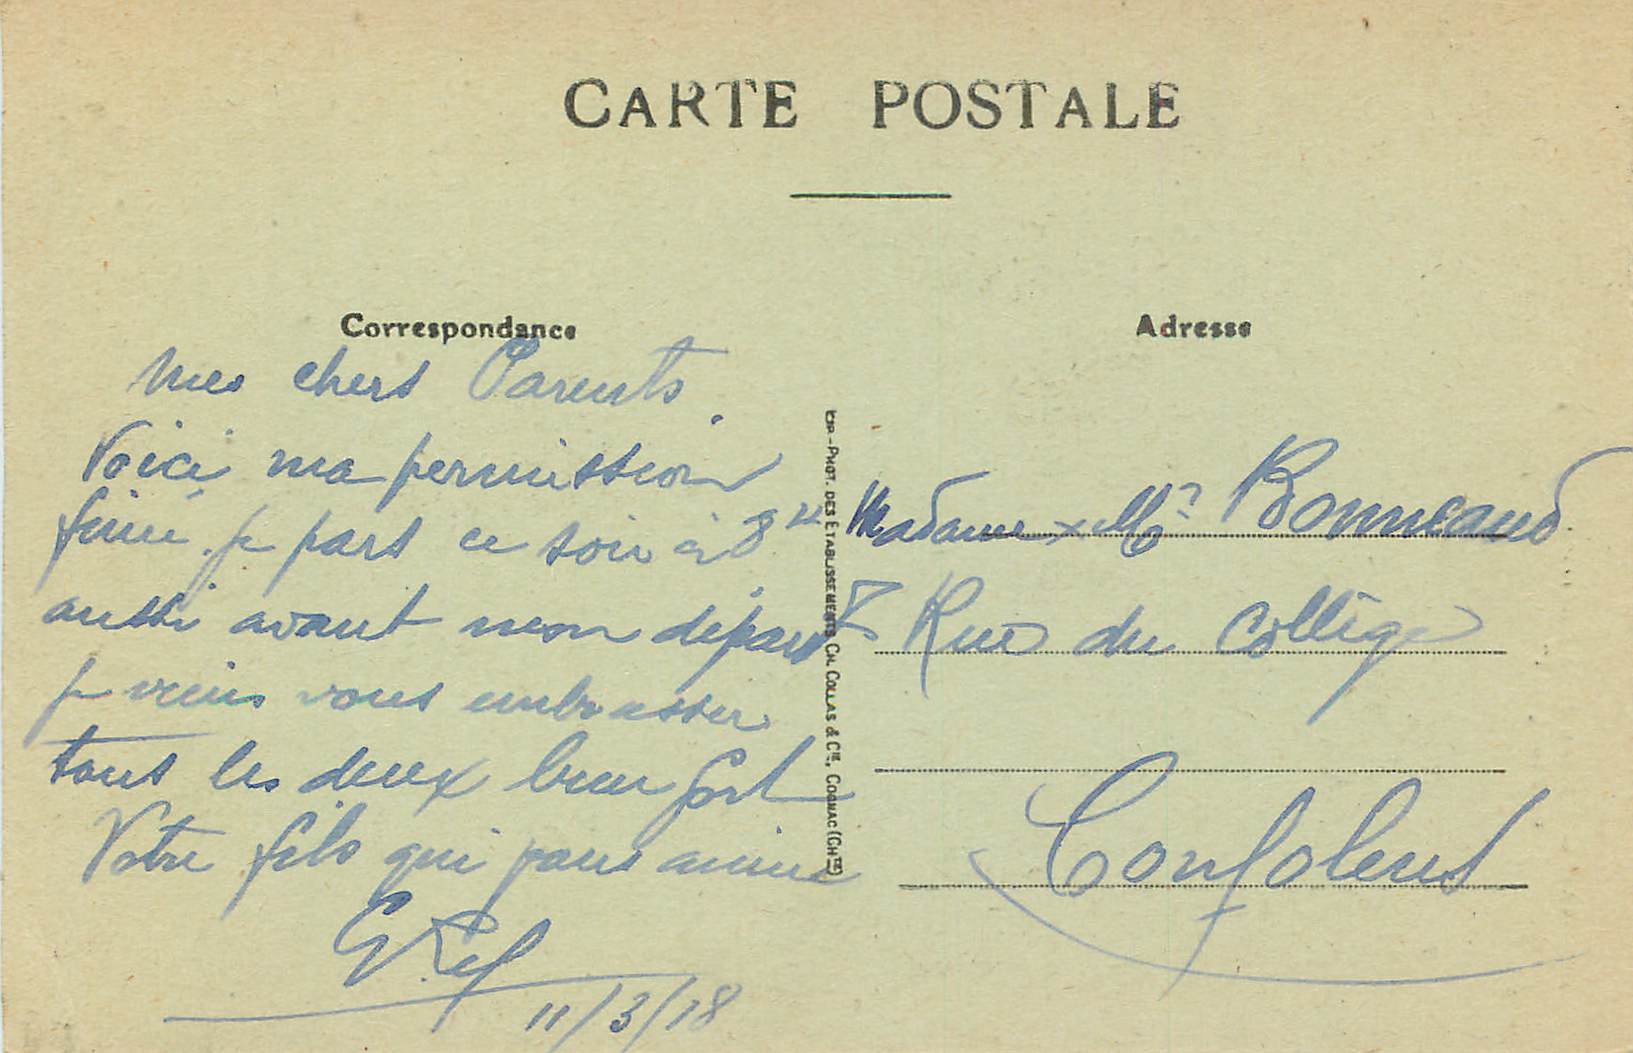 CARTE POSTALE
Correspondance
Mes chers Parents.
Voici ma permission
finie. je part ce soir à 8 H
aussi avant mon départ
je viens vous embrasser
tous les deux bien fort
Votre fils qui vous aime
11/3/18
IMP.-PHOT. DES ÉTABLISSEMENTS CH. COLLAS & Cie, COGNAC (CHte)
Adresse
Madame x Mr Bonneaud
Rue du Collège
Confolens